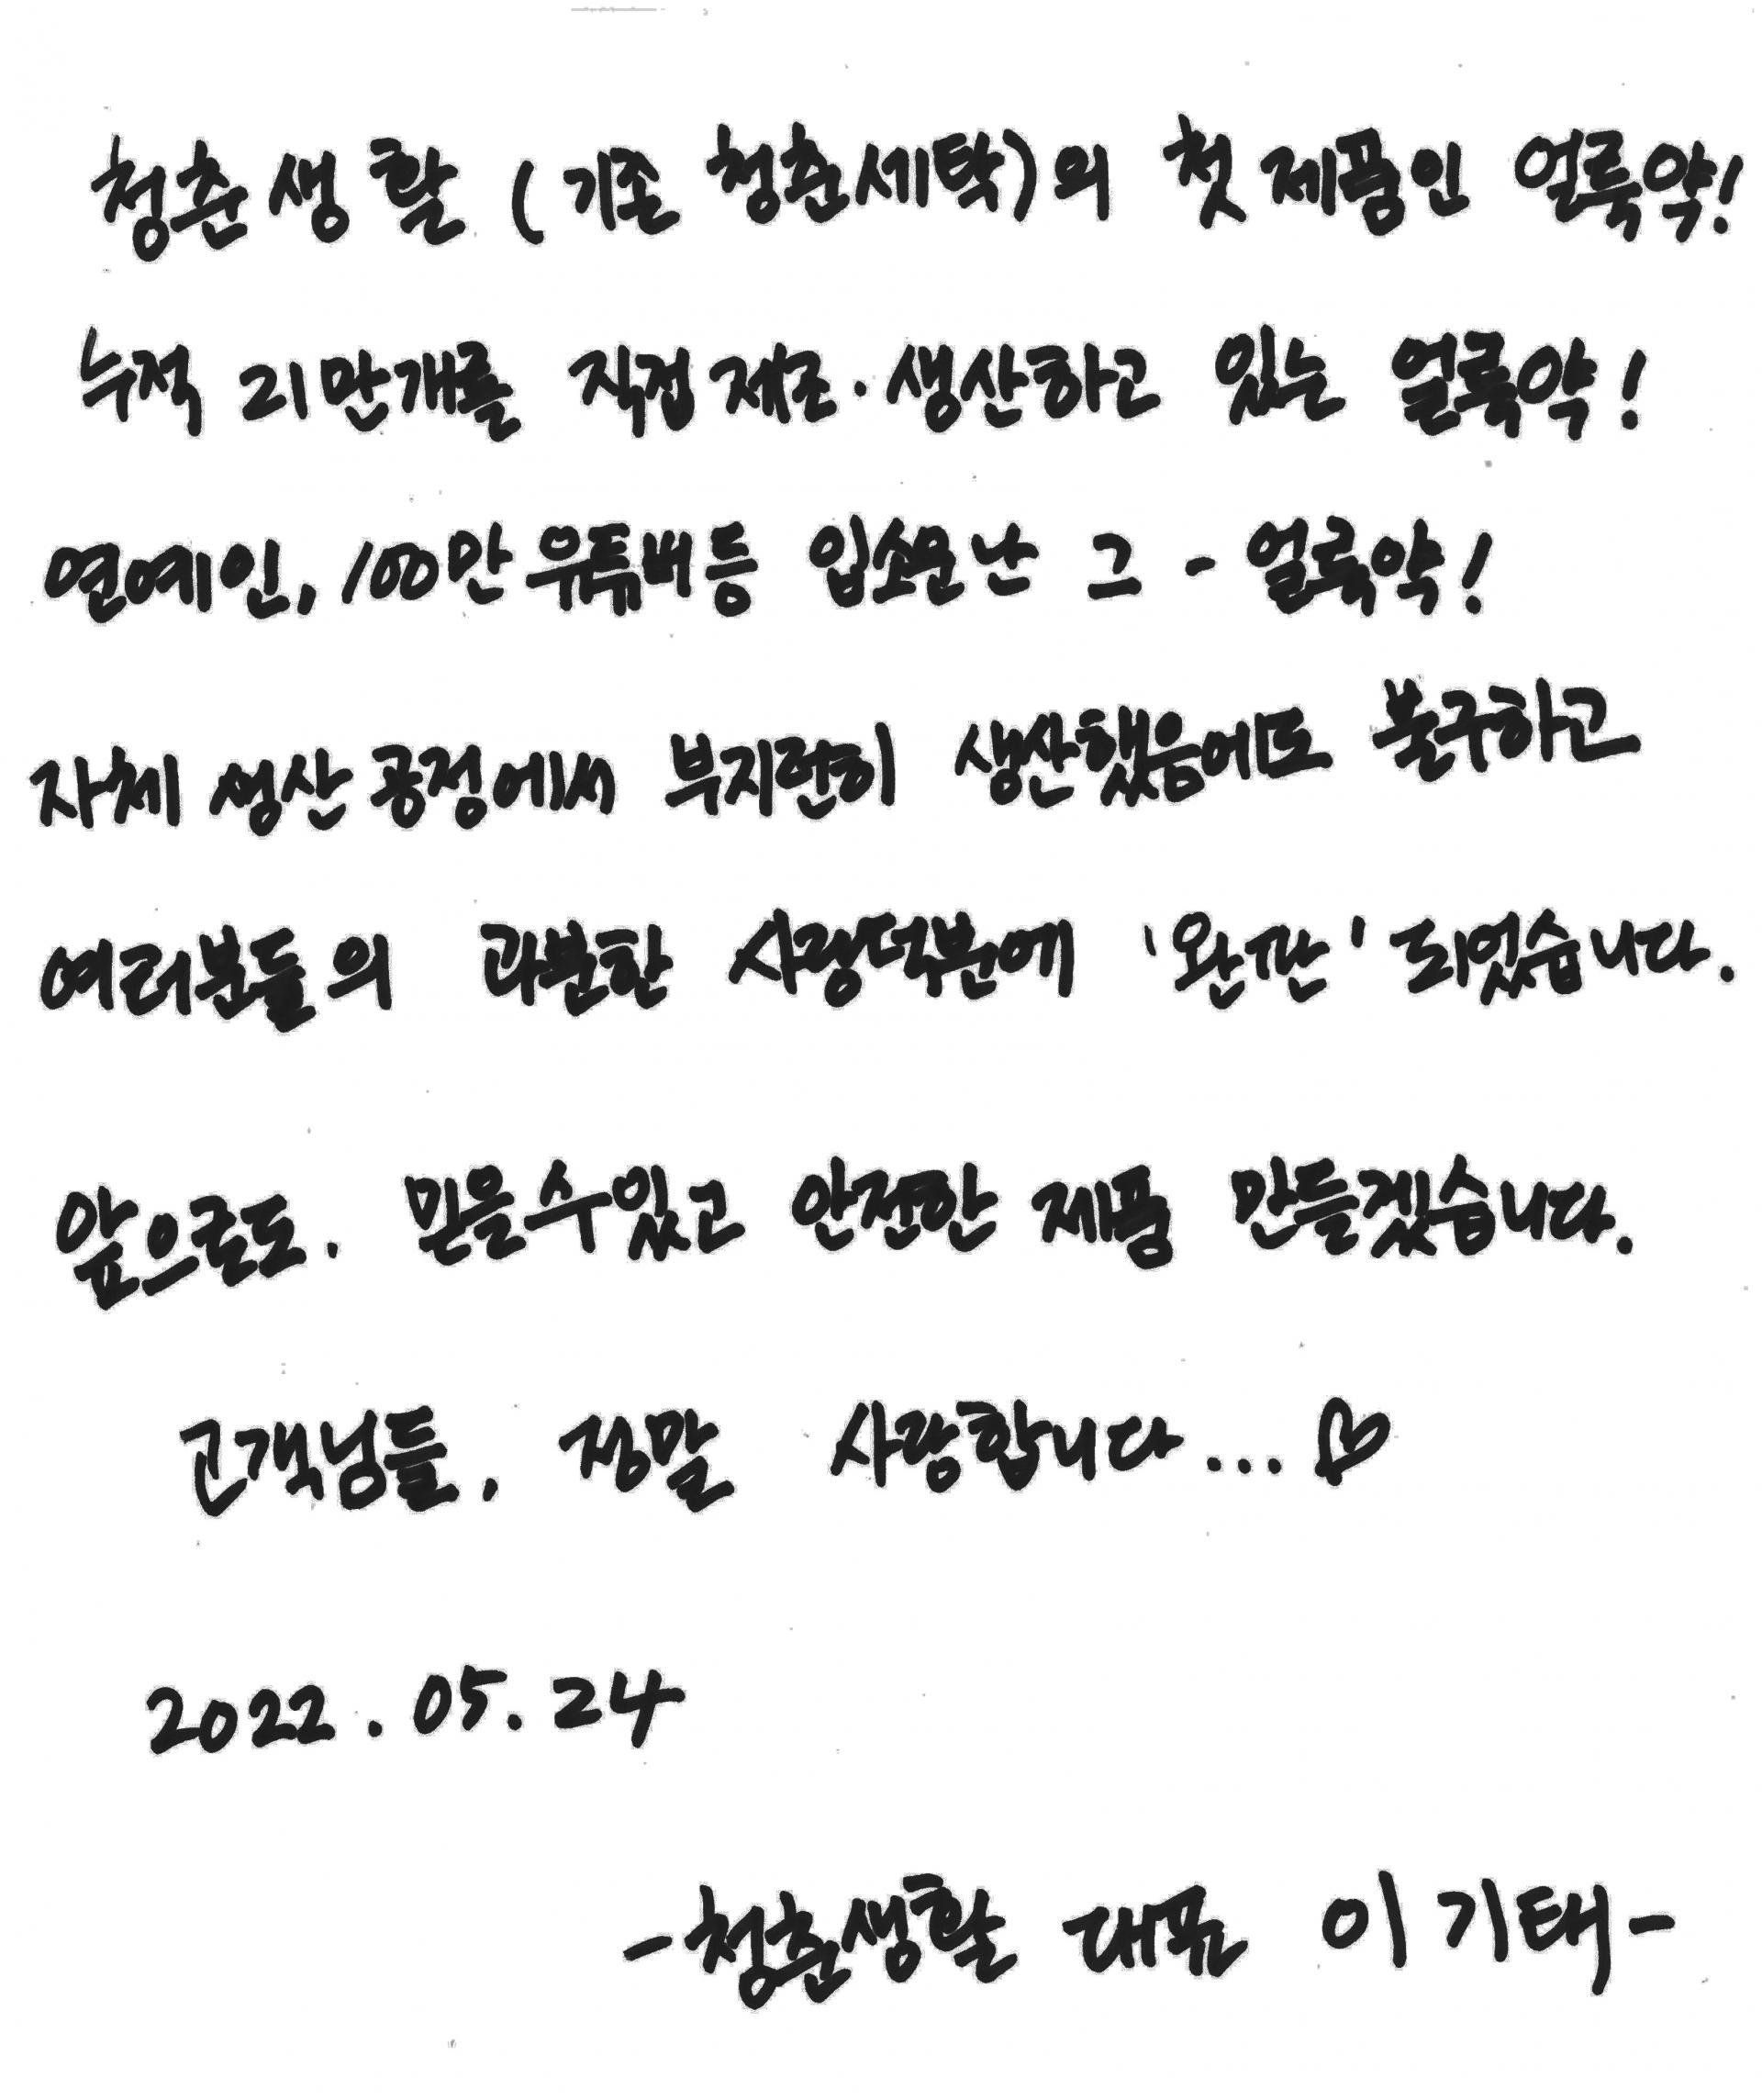 청춘생활 (기존 청춘세탁)의 첫 제품인 얼룩약!
누적 21만개를 직접 제조·생산하고 있는 얼룩약!
연예인, 100만 유튜버등 입소문난 그 - 얼룩약!
자체 생산 공정에서 부지런히 생산했음에도 불구하고
여러분들의 과분한 사랑덕분에 '완판' 되었습니다.
앞으로도, 믿을수있고 안전한 제품 만들겠습니다.
고객님들, 정말 사랑합니다...♡
2022.05.24
-청춘생활 대표 이기태-